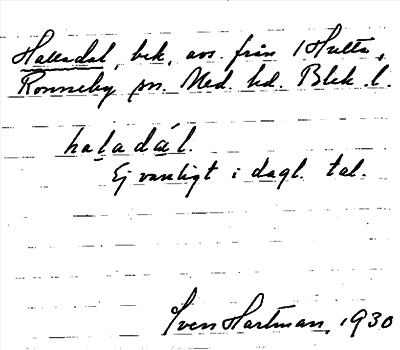 Halladal, bek. avs. från 1 Hulta,
Ronneby sn. Med. hd. Blek. l.
haladál.
Ej vanligt i dagl. tal.
Sven Hartman, 1930